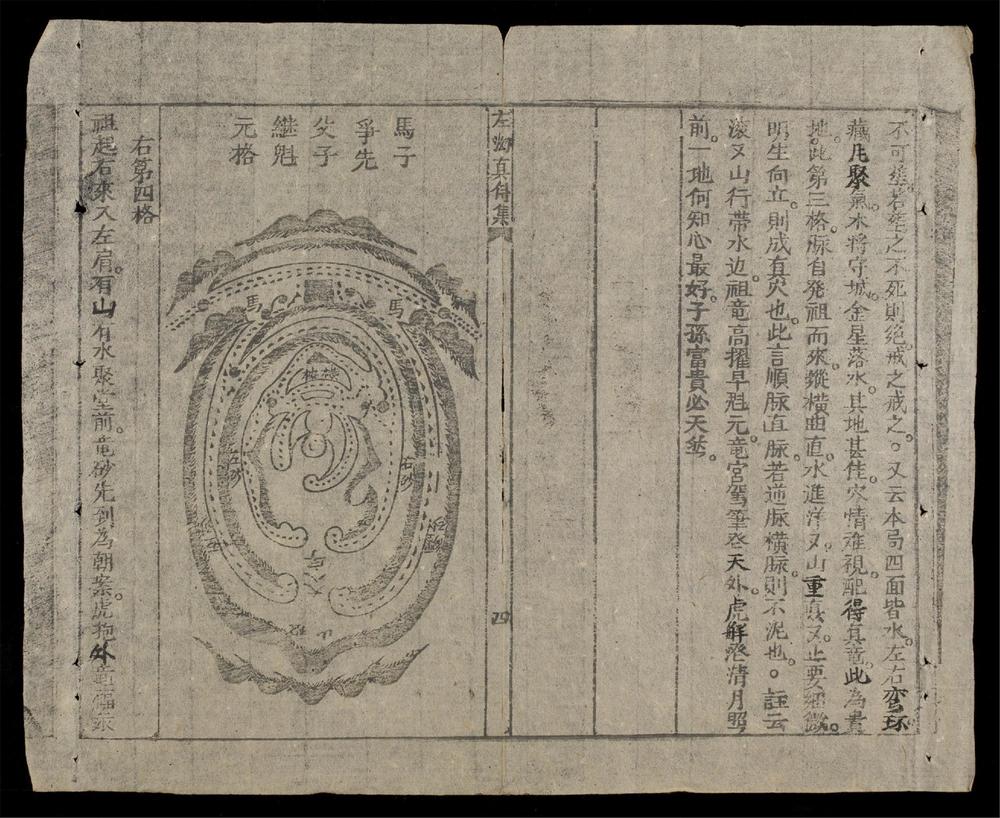 不可塟若塟之不死則絶戒之戒之。又云本局四面皆水左右弯环
藏風聚氣水將守城金星落水其地甚佳穴情难視配得真竜此為貴
地此第三格脉自発祖而來蹤横曲直水進洋又山重又止要細微
明生向立則成直穴也此言順脉直脉若逆脉横脉則不泥也。註云
滚又山行帶水边祖竜高擢早魁元竜宮駕筆登天外虎觧丞清月照
前一地何知心最好子孫富貴必天然
左㳙真傳集
四
馬子
爭先
父子
継魁
元格
馬
馬
左砂
右砂
右第四格
祖起右來入左肩有山有水聚堂前竜砂先到為朝案虎抱外竜福